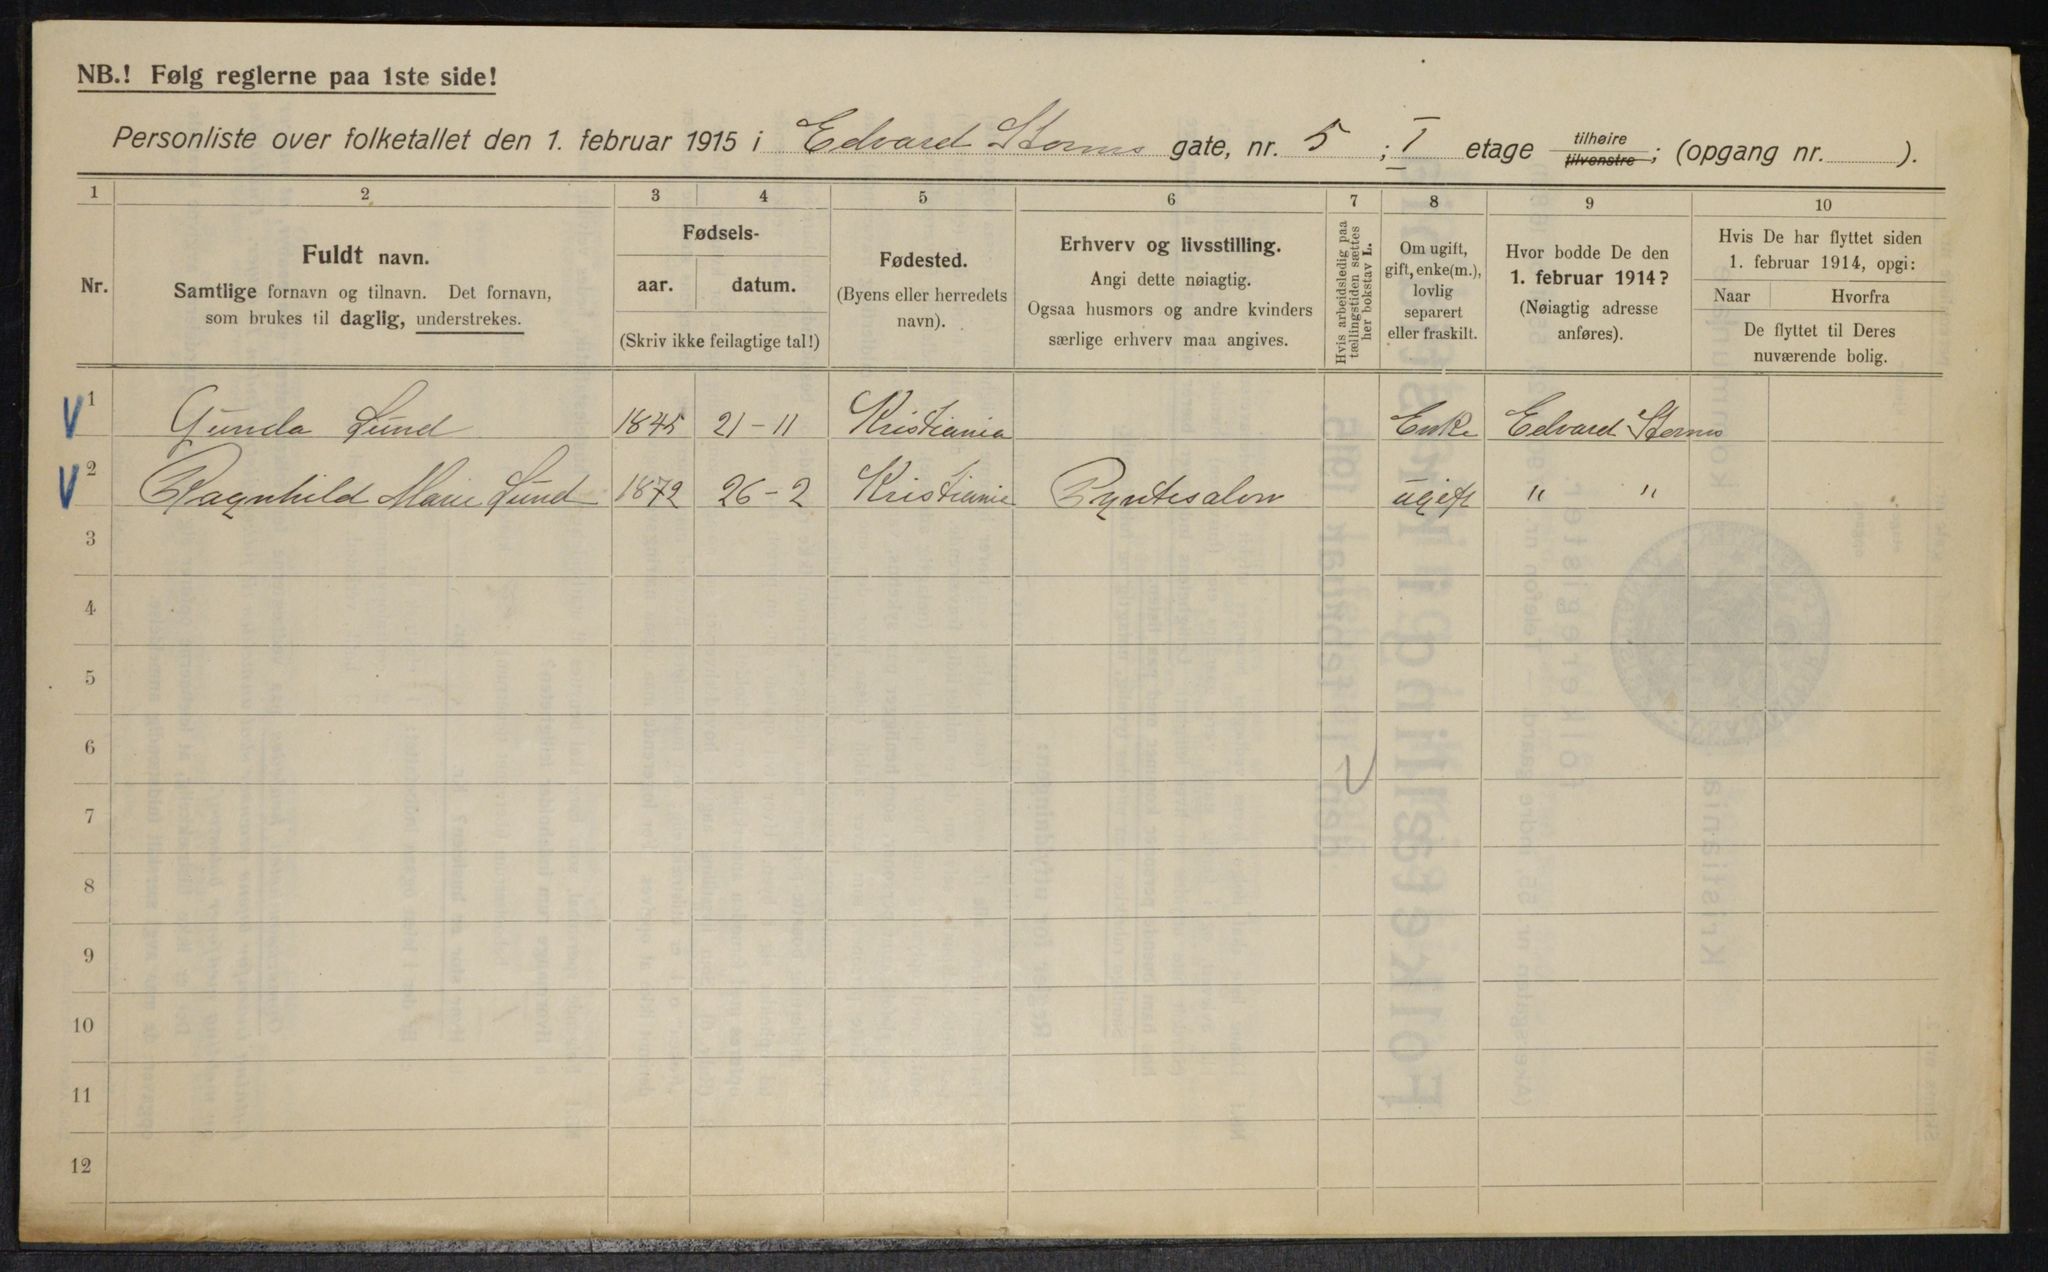 NB.! Følg reglerne paa 1ste side!
Personliste over folketallet den 1. februar 1915 i Edvard Storms gate, nr. 5 ; I etage tilhøire tilvenstre ; (opgang nr. ).
1 2 3 4 5 6 7 8 9 10
Nr.
Fuldt navn.
Samtlige fornavn og tilnavn. Det fornavn,
som brukes til daglig, understrekes.
Fødsels-
aar. datum.
(Skriv ikke feilagtige tal!)
Fødested.
(Byens eller herredets
navn).
Erhverv og livsstilling.
Angi dette nøiagtig.
Ogsaa husmors og andre kvinders
særlige erhverv maa angives.
Hvis arbeidsledig paa
tællingstiden sættes
her bokstav L.
Om ugift,
gift, enke(m.),
lovlig
separert
eller fraskilt.
Hvor bodde De den
1. februar 1914?
(Nøiagtig adresse
anføres).
Hvis De har flyttet siden
1. februar 1914, opgi:
Naar Hvorfra
De flyttet til Deres
nuværende bolig.
V 1 Gunda Lund 1845 21-11 Kristiania Enke Edvard Storms
V 2 Ragnhild Marie Lund 1872 26-2 Kristiania Pyntesalon ugift " "
3
4
5
6
7
8
9
10
11
12